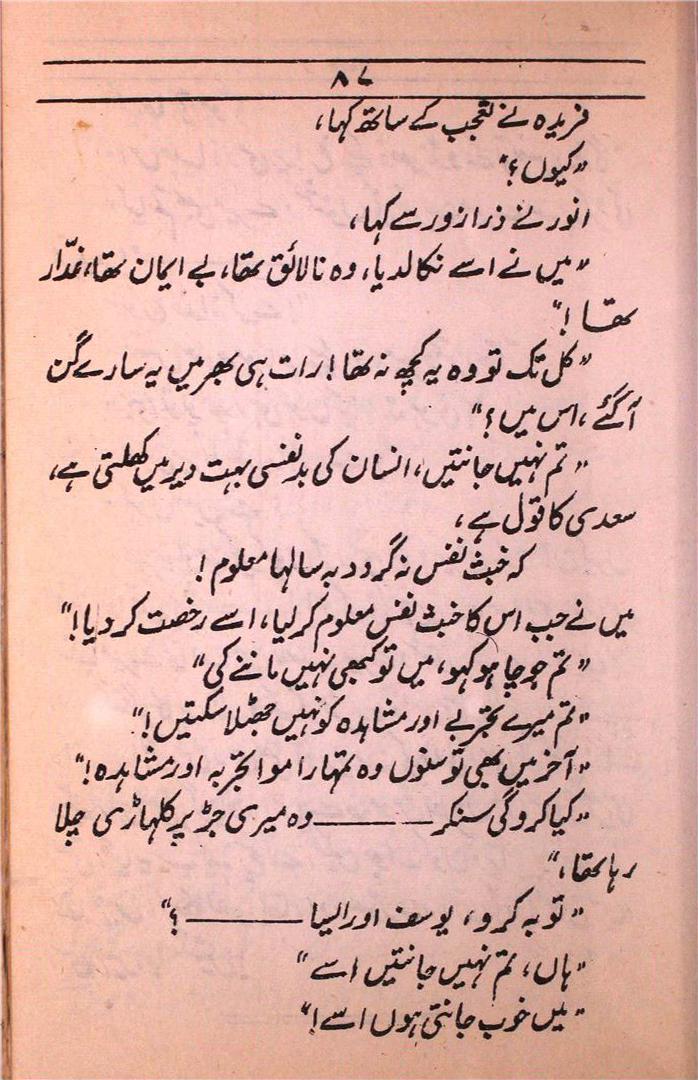 ۸۷
فریدہ نے تعجب کے ساتھ کہا،
"کیوں؟"
انور نے ذرا زور سے کہا،
"میں نے اسے نکالدیا، وہ نالائق تھا، بے ایمان تھا، غدّار
تھا!"
"کل تک تو وہ یہ کچھ نہ تھا! رات ہی بھر میں یہ سارے گن
آگئے، اس میں؟"
"تم نہیں جانتیں، انسان کی بدنفسی بہت دیر میں کھلتی ہے،
سعدی کا قول ہے،
کہ خبث نفس نہ گردد بہ سالہا معلوم!
میں نے جب اس کا خبث نفس معلوم کرلیا، اسے رخصت کردیا!"
"تم جو چاہو کہو، میں تو کبھی نہیں ماننے کی"
"تم میرے تجربے اور مشاہدہ کو نہیں جھٹلا سکتیں!"
"آخر میں بھی تو سنوں وہ تمہارا موا تجربہ اور مشاہدہ!"
"کیا کروگی سنکر ———— وہ میری جڑ پر کلہاڑی چلا
رہا تھا،"
"توبہ کرو، یوسف اور الیا ———— ؟"
"ہاں، تم نہیں جانتیں اسے"
"میں خوب جانتی ہوں اسے!"